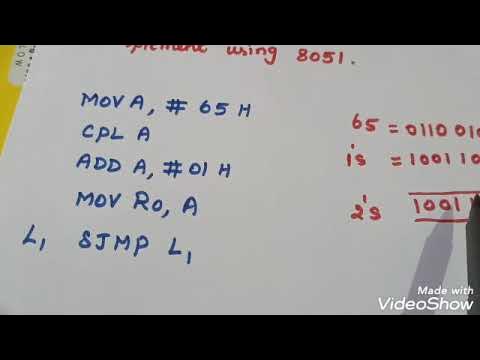 using 8051.
MOV A, # 65 H
CPL A
ADD A, # 01 H
MOV R0, A
L1 SJMP L1
65 = 0110 010
1's = 1001 10
2's 1001 1
Made with
VideoShow